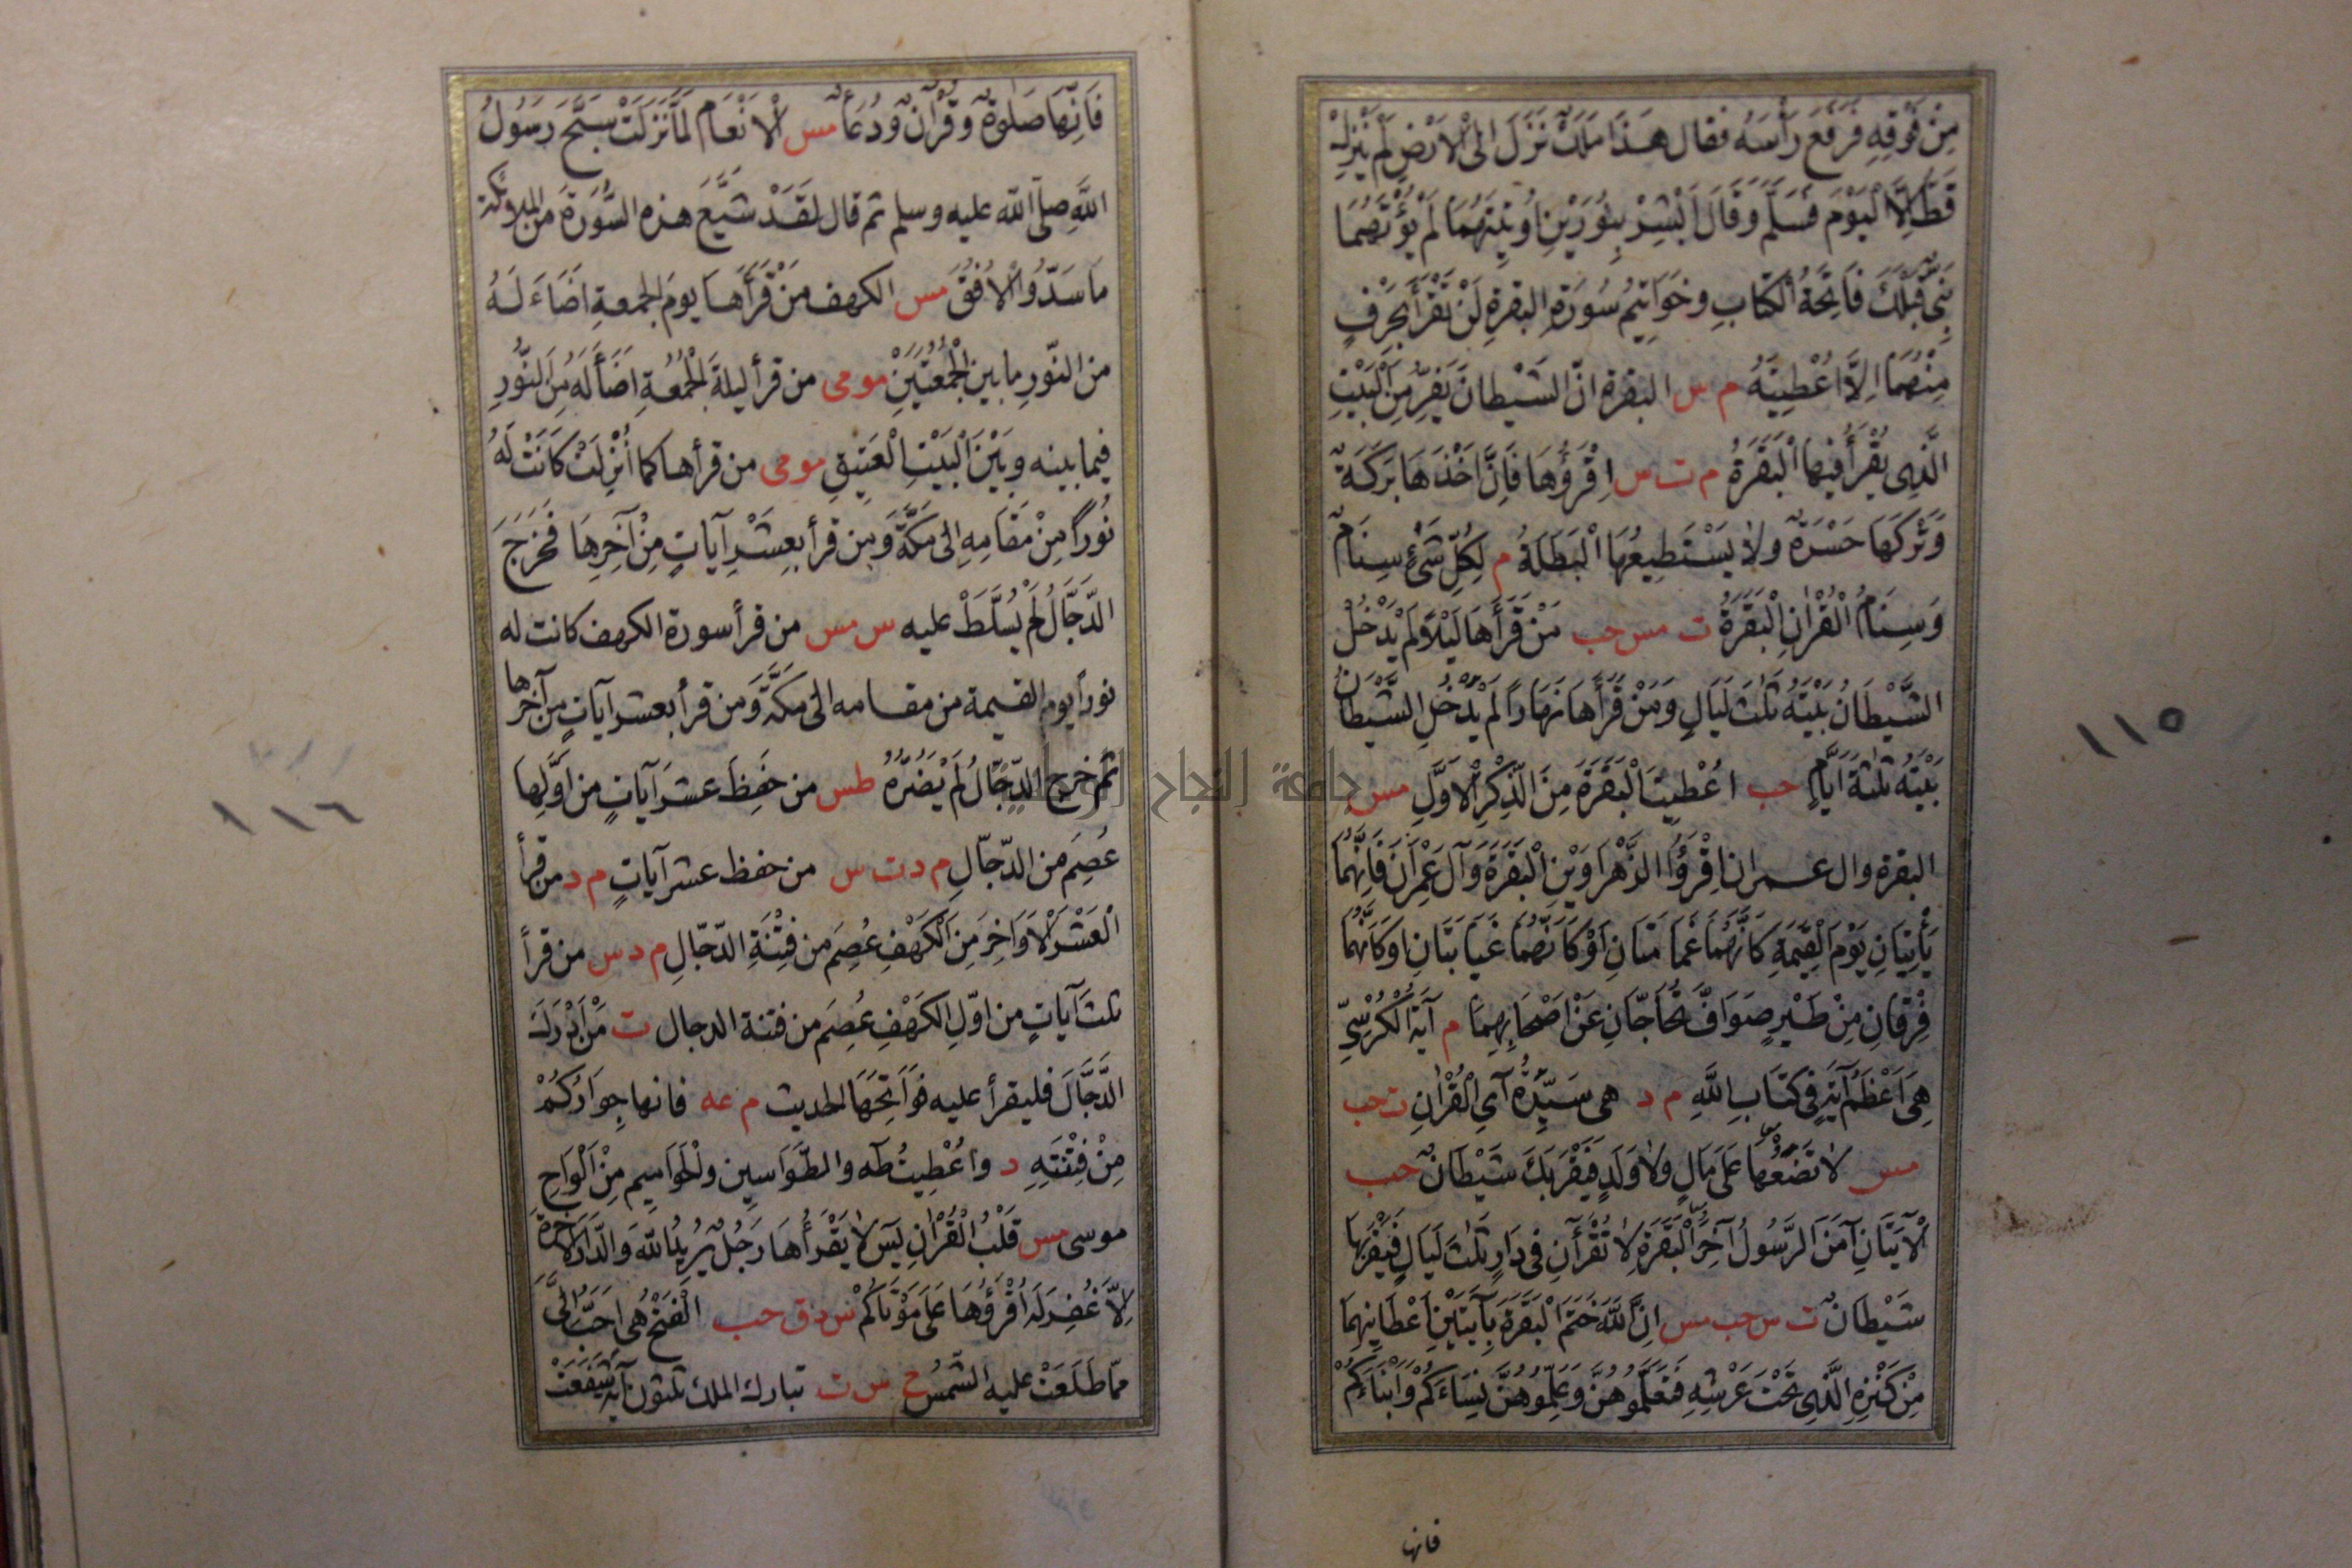 مِنْ فَوْقِهِ فَرَفَعَ رَأْسَهُ فقال هَذَا مَلَكٌ نَزَلَ اِلَى الْاَرْضِ لَمْ يَنْزِلْ
قَطُّ اِلَّا الْيَوْمَ فَسَلَّمَ وَقَالَ اَبْشِرْ بِنُورَيْنِ اُوتِيتَهُمَا لَمْ يُؤْتَهُمَا
نَبِيٌّ قَبْلَكَ فَاتِحَةُ الْكِتَابِ وخَوَاتِيمُ سُورَةِ البقرةِ لَنْ تَقْرَأَ بِحَرْفٍ
مِنْهُمَا اِلَّا اُعْطِيتَهُ م س البقرة انّ الشَّيْطانَ يَفِرُّ مِنَ الْبَيْتِ
الَّذِي يُقْرَأُ فيها الْبَقَرَةُ م ت س اِقْرَؤُهَا فَاِنَّ اَخْذَهَا بَرَكَةٌ
وَتَرْكَهَا حَسْرَةٌ ولا يَسْتَطِيعُهَا الْبَطَلَةُ م لِكُلِّ شَيْءٍ سِنَامٌ
وَسِنَامُ الْقُرْاٰنِ الْبَقَرَةُ ت مس حب مَنْ قَرَأَهَا لَيْلاً لَمْ يَدْخُلْ
الشَّيْطَانُ بَيْتَهُ ثلٰثَ لَيَالٍ وَمَنْ قَرَأَهَا نَهَاراً لَمْ يَدْخُلِ الشَّيْطَانُ
بَيْتَهُ ثلٰثةَ اَيَّامٍ حب اُعْطِيتُ الْبَقَرَةَ مِنَ الذِّكْرِ الْاَوَّلِ مس
البقرة وال عمران اِقْرَؤُا الزَّهْرَاوَيْنِ الْبَقَرَةَ وَآلَ عِمْرَانَ فَاِنَّهُمَا
يَأْتِيَانِ يَوْمَ الْقِيٰمَةِ كَاَنَّهُمَا غَمَامَتَانِ اَوْ كَاَنَّهُمَا غَيَايَتَانِ اوكَاَنَّهُمَا
فِرْقَانِ مِنْ طَيْرٍ صَوَافَّ تُحَاجَّانِ عَنْ اَصْحَابِهِمَا م آيَةُ الْكُرْسِيِّ
هِيَ اَعْظَمُ آيَةٍ فِي كِتَابِ اللَّهِ م د هي سَيِّدَةُ آيِ الْقُرْاٰنِ ت حب
مس لا تَضَعُهَا عَلَى مَالٍ ولا وَلَدٍ فَيَقْرَبَكَ شَيْطَانٌ حب
الْآيَتَانِ آمَنَ الرَّسُولُ آخِرَ الْبَقَرَةِ لا تُقْرَآنِ فِي دَارٍ ثَلٰثَ لَيَالٍ فَيَقْرَبُهَا
شَيْطَانٌ ت س حب مس اِنَّ اللَّهَ خَتَمَ الْبَقَرَةَ بِآيَتَيْنِ اَعْطَانِيهِمَا
مِنْ كَنْزِهِ الَّذِي تَحْتَ عَرْشِهِ فَتَعَلَّمُوهُنَّ وَعَلِّمُوهُنَّ نِسَاءَكُمْ وَاَبْنَاءَكُمْ
فانها
١١٥
فَاِنَّهَا صَلٰوةٌ وَقُرْآنٌ وَدُعَاءٌ مس الْاَنْعَام لَمَّا نَزَلَتْ سَبَّحَ رَسُولُ
اللَّهِ صلى اللّه عليه وسلم ثم قال لَقَدْ شَيَّعَ هذه السُّورَةَ من الملائكة
مَا سَدُّوا الْاُفُقَ مس الكهف مَنْ قَرَأَهَا يومَ الجمعةِ اَضَاءَ لَهُ
من النّورِ ما بين الْجُمُعَتَيْنِ مومى من قرأ ليلة الْجُمُعَةِ اَضَاءَ لَهُ مِنَ النُّورِ
فيما بينه وبَيْنَ الْبَيْتِ الْعَتِيقِ مومى من قرأها كما اُنْزِلَتْ كَانَتْ لَهُ
نُوراً مِنْ مَقَامِهِ اِلى مَكَّةَ وَمن قرأ بعشرِ آيَاتٍ مِنْ آخِرِهَا فَخَرَجَ
الدَّجَّالُ لَمْ يُسَلَّطْ عليه س مس من قرأ سورة الكهف كانت له
نوراً يوم القيمة من مقامه الى مكَّةَ وَمن قرأ بعشر آياتٍ من آخرها
ثم خرج الدّجّالُ لَمْ يَضُرَّهُ طس من حَفِظَ عشرَ آياتٍ من اوّلها
عُصِمَ من الدّجّالِ م د ت س من حفظ عشر آياتٍ م د من قرأ
الْعَشْرَ الْاَوَاخِرَ مِنَ الْكَهْفِ عُصِمَ من فِتْنَةِ الدّجّالِ م د س من قرأ
ثلثَ آياتٍ من اوّلِ الكَهْفِ عُصِمَ من فتنة الدجال ت مَنْ اَدْرَكَ
الدَّجَّالَ فليقرأ عليه فَوَاتِحَهَا الحديث م عه فانها جِوَارُكُمْ
مِنْ فِتْنَتِهِ د واُعْطِيتُ طٓه والطَّوَاسِين والْحَوَامِيم مِنْ اَلْوَاحِ
موسى مس قَلْبُ الْقُرْاٰنِ يٓس لا يَقْرَأُهَا رَجُلٌ يُرِيدُ اللّهَ وَالدَّارَ الْاٰخِرَةَ
اِلَّا غُفِرَ لَهُ اقْرَؤُهَا عَلَى مَوْتَاكُمْ س د ق حب الْفَتْحُ هي اَحَبُّ اِلَيَّ
مما طَلَعَتْ عليه الشَّمْسُ خ س ت تبارك الملك ثلثون آيَةً شَفَعَتْ
١١٦
جامعة النجاح الوطنية